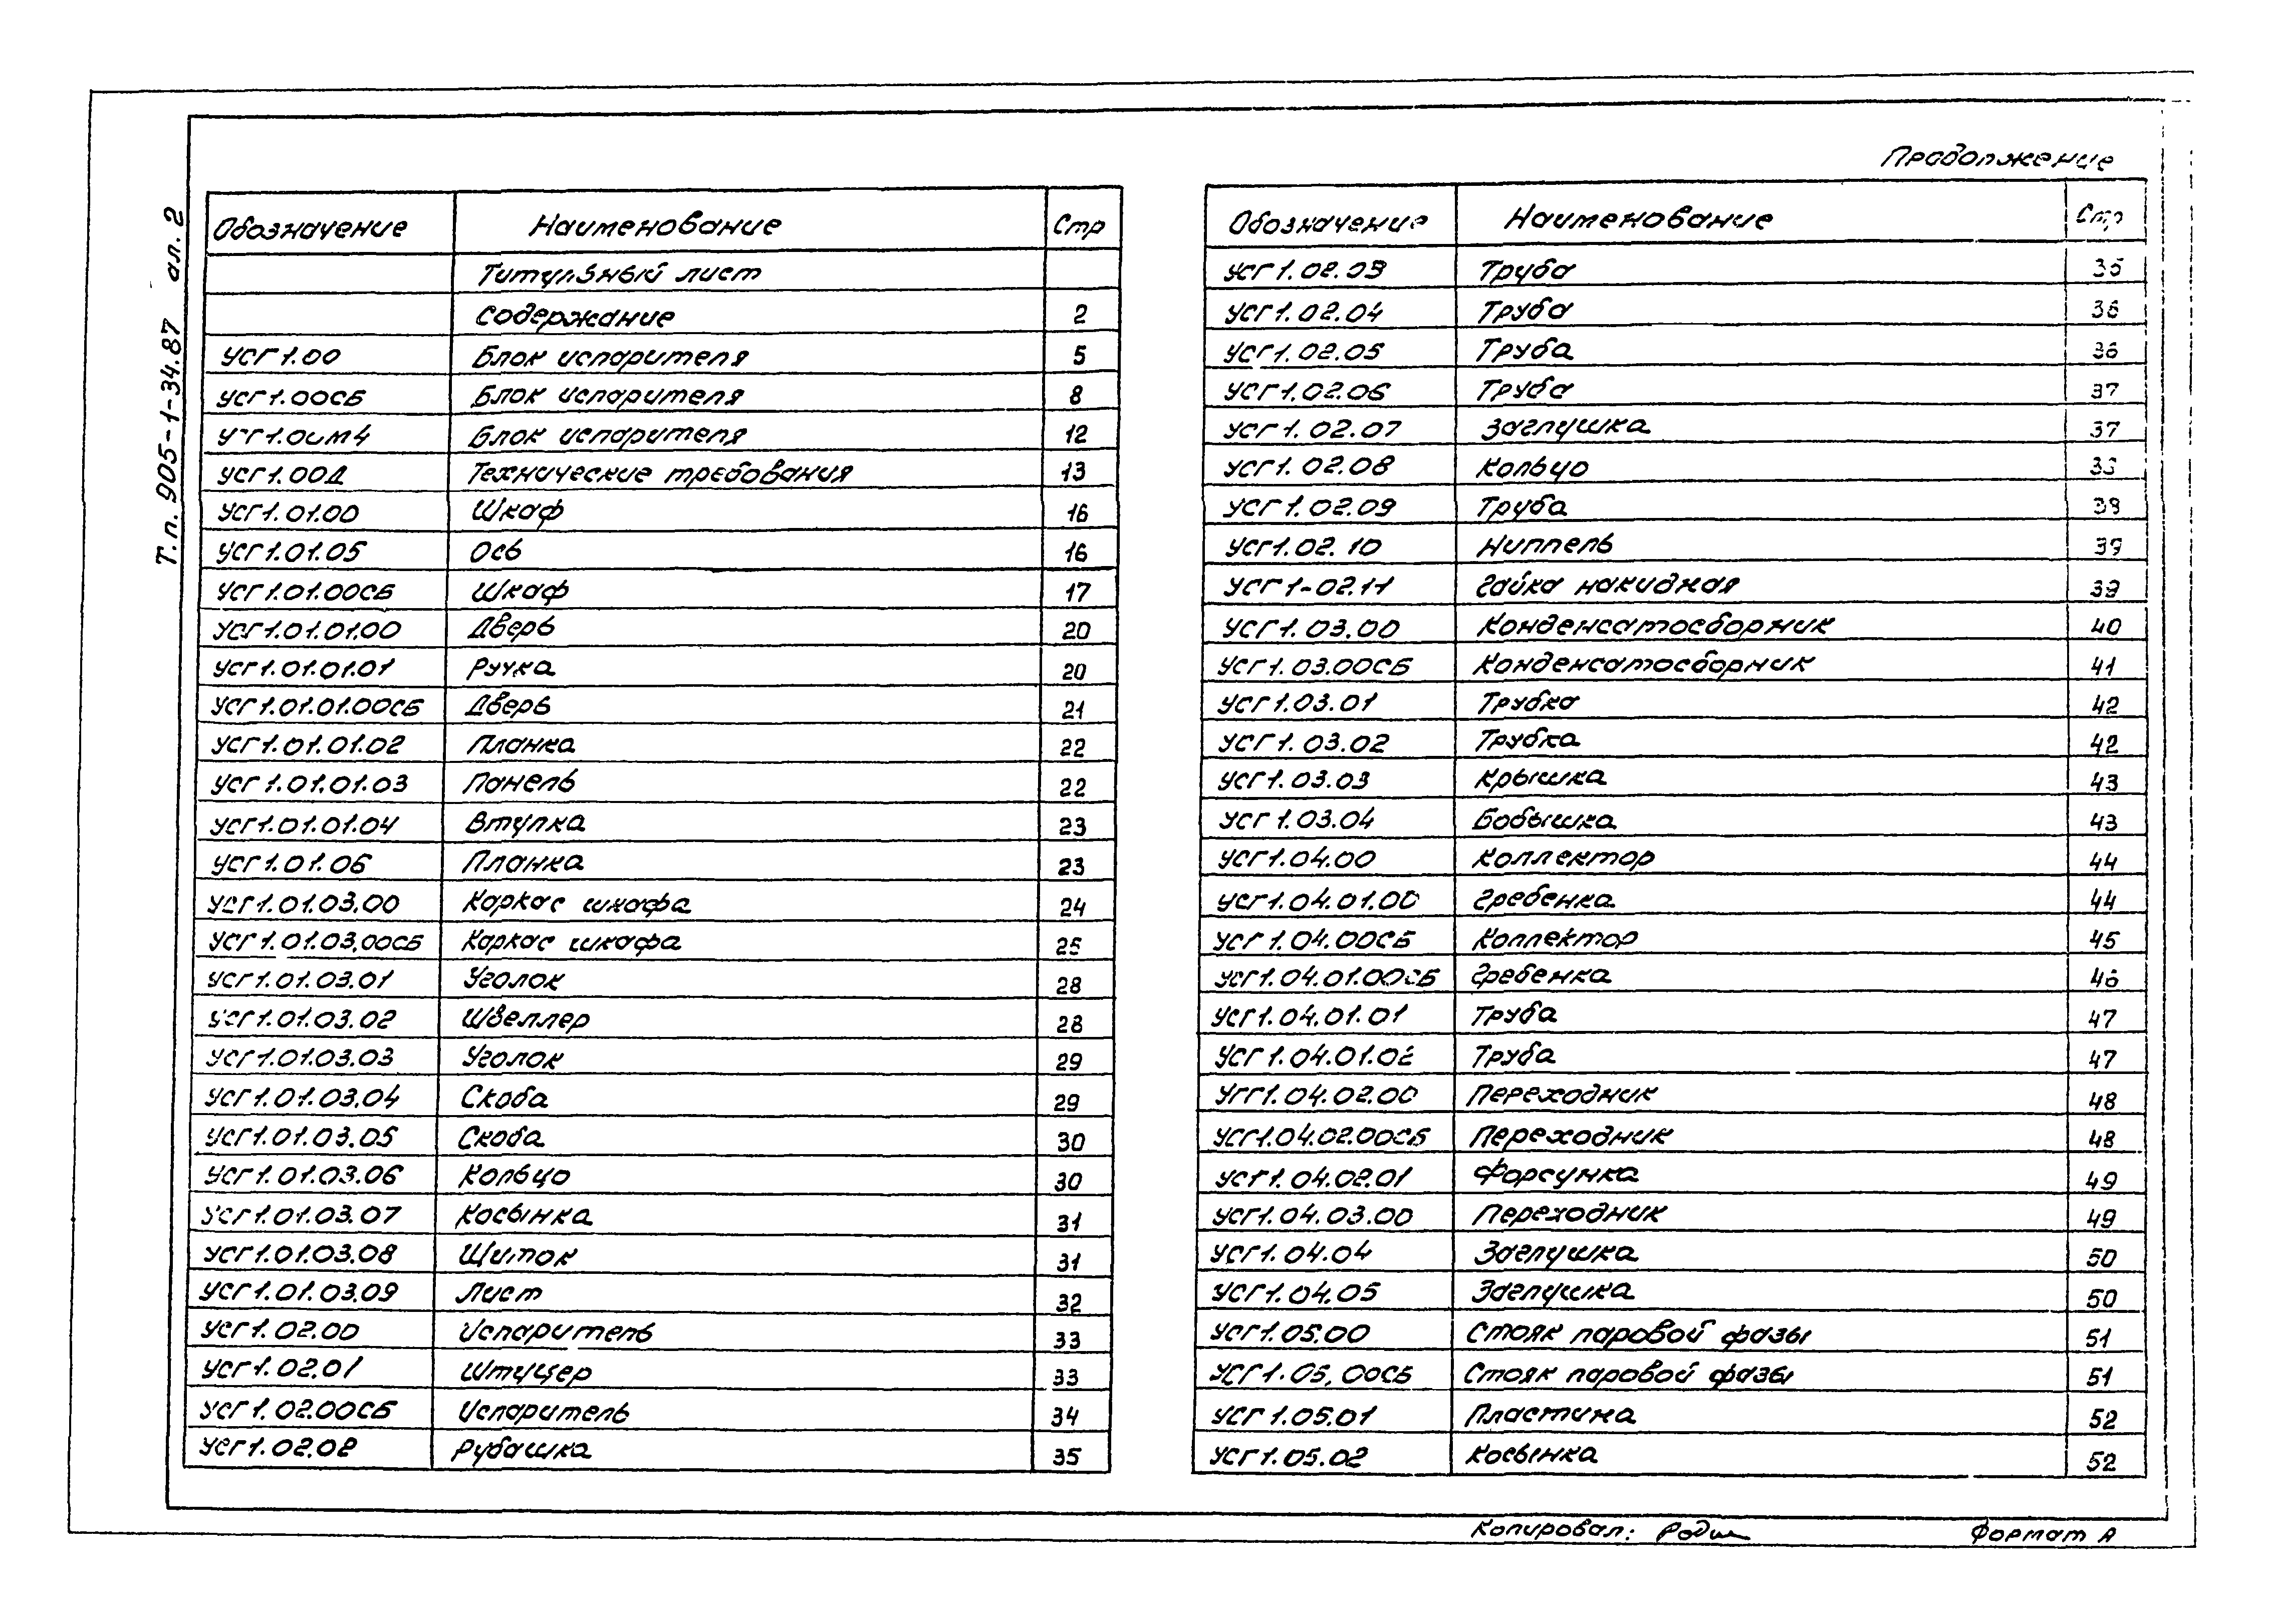 Т.п. 905-1-34.87 ал. 2
Обозначение Наименование Стр
Титульный лист
Содержание 2
УСГ1.00 Блок испарителя 5
УСГ1.00СБ Блок испарителя 8
Блок испарителя 12
УСГ1.00Д Технические требования 13
УСГ1.01.00 Шкаф 16
УСГ1.01.05 Ось 16
УСГ1.01.00СБ Шкаф 17
УСГ1.01.01.00 Дверь 20
УСГ1.01.01.01 Ручка 20
УСГ1.01.01.00СБ Дверь 21
УСГ1.01.01.02 Планка 22
УСГ1.01.01.03 Панель 22
УСГ1.01.01.04 Втулка 23
УСГ1.01.06 Планка 23
УСГ1.01.03.00 Каркас шкафа 24
УСГ1.01.03.00СБ Каркас шкафа 25
УСГ1.01.03.01 Уголок 28
УСГ1.01.03.02 Швеллер 28
УСГ1.01.03.03 Уголок 29
УСГ1.01.03.04 Скоба 29
УСГ1.01.03.05 Скоба 30
УСГ1.01.03.06 Кольцо 30
УСГ1.01.03.07 Косынка 31
УСГ1.01.03.08 Щиток 31
УСГ1.01.03.09 Лист 32
УСГ1.02.00 Испаритель 33
УСГ1.02.01 Штуцер 33
УСГ1.02.00СБ Испаритель 34
УСГ1.02.02 Рубашка 35
Продолжение
Обозначение Наименование Стр
УСГ1.02.03 Труба 35
УСГ1.02.04 Труба 36
УСГ1.02.05 Труба 36
УСГ1.02.06 Труба 37
УСГ1.02.07 Заглушка 37
УСГ1.02.08 Кольцо
УСГ1.02.09 Труба 38
УСГ1.02.10 Ниппель 39
УСГ1-02.11 Гайка накидная 39
УСГ1.03.00 Конденсатосборник 40
УСГ1.03.00СБ Конденсатосборник 41
УСГ1.03.01 Трубка 42
УСГ1.03.02 Трубка 42
УСГ1.03.03 Крышка 43
УСГ1.03.04 Бобышка 43
УСГ1.04.00 Коллектор 44
УСГ1.04.01.00 Гребенка 44
УСГ1.04.00СБ Коллектор 45
УСГ1.04.01.00СБ Гребенка 46
УСГ1.04.01.01 Труба 47
УСГ1.04.01.02 Труба 47
УСГ1.04.02.00 Переходник 48
УСГ1.04.02.00СБ Переходник 48
УСГ1.04.02.01 Форсунка 49
УСГ1.04.03.00 Переходник 49
УСГ1.04.04 Заглушка 50
УСГ1.04.05 Заглушка 50
УСГ1.05.00 Стояк паровой фазы 51
УСГ1.05.00СБ Стояк паровой фазы 51
УСГ1.05.01 Пластина 52
УСГ1.05.02 Косынка 52
Копировал: Формат А